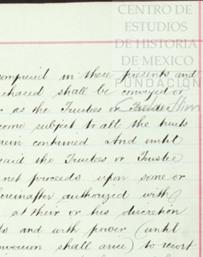 CENTRO DE
ESTUDIOS
DE HISTORIA
DE MEXICO
FUNDACIÓN
comprised in these presents and
purchased shall be conveyed or
or as the Trustees or Trustee
come subject to all the trusts
herein contained And until
said the Trustees or Trustee
net proceeds upon some or
hereinafter authorized with
at their or his discretion
and with power (until
conversion shall arise) to resort